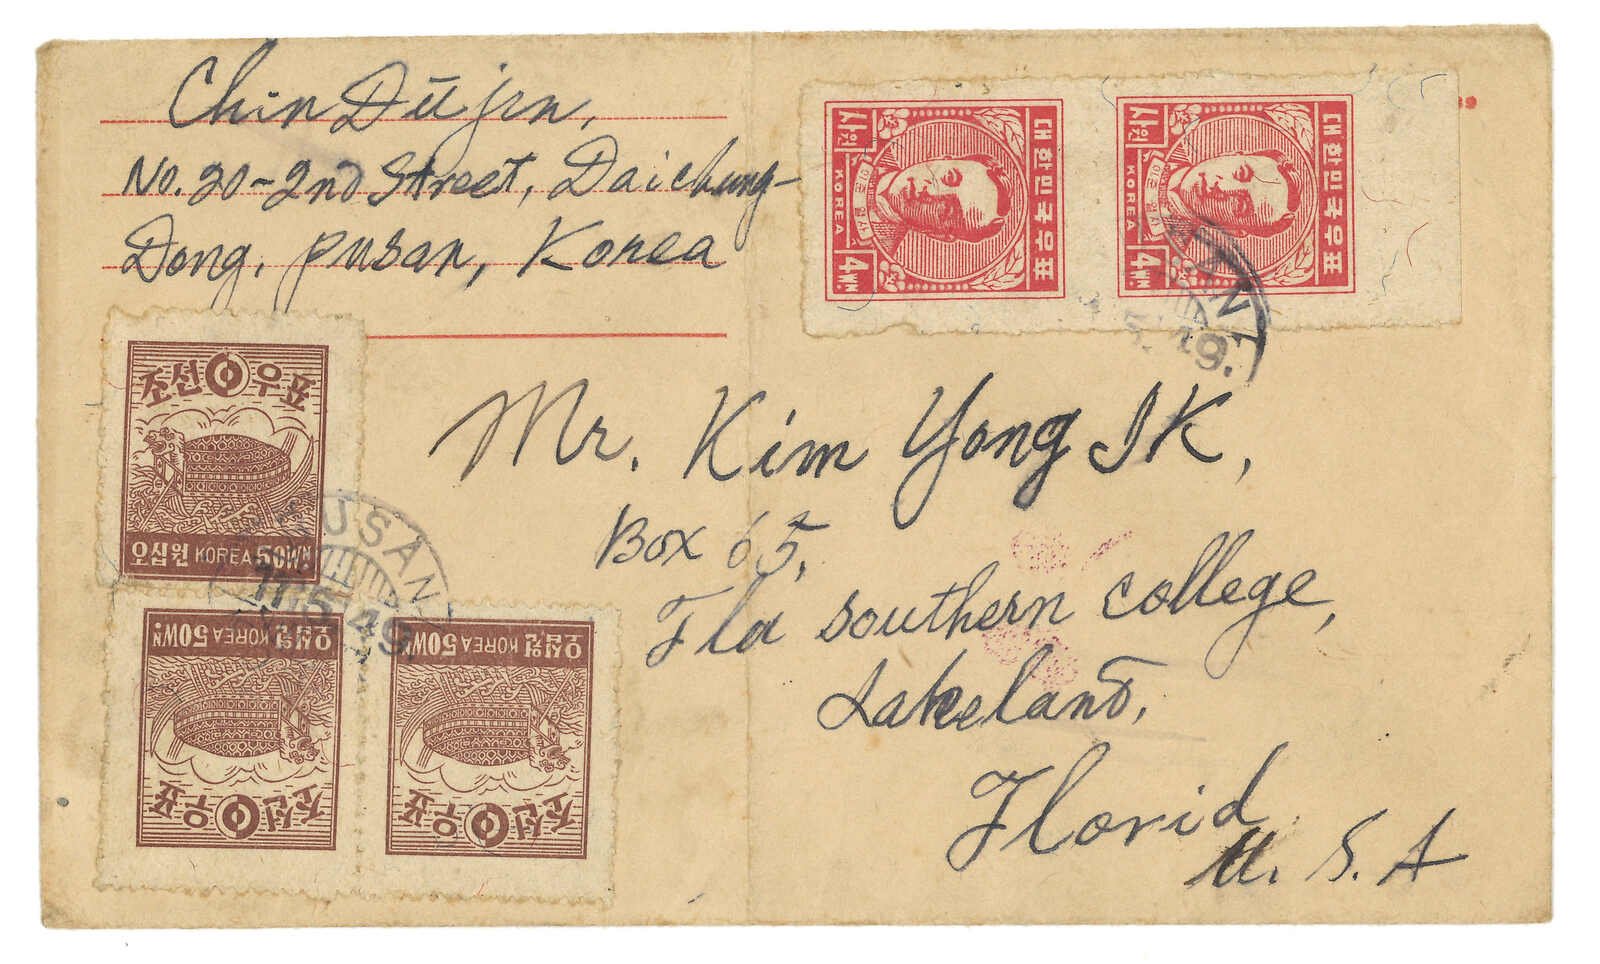 Chin Dū jin,
No. 20-2nd Street, Daichung-
Dong, Pusan, Korea
대한민국우표
사원
KOREA
4 WN.
대한민국우표
사원
KOREA
4 WN.
Mr. Kim Yong IK,
Box 65,
Fla Southern College,
Lakeland,
Florid
U. S. A
조선우표
오십원 KOREA 50WN
USAN
11.5.49.
오십원 KOREA 50WN
조선우표
오십원 KOREA 50WN
조선우표